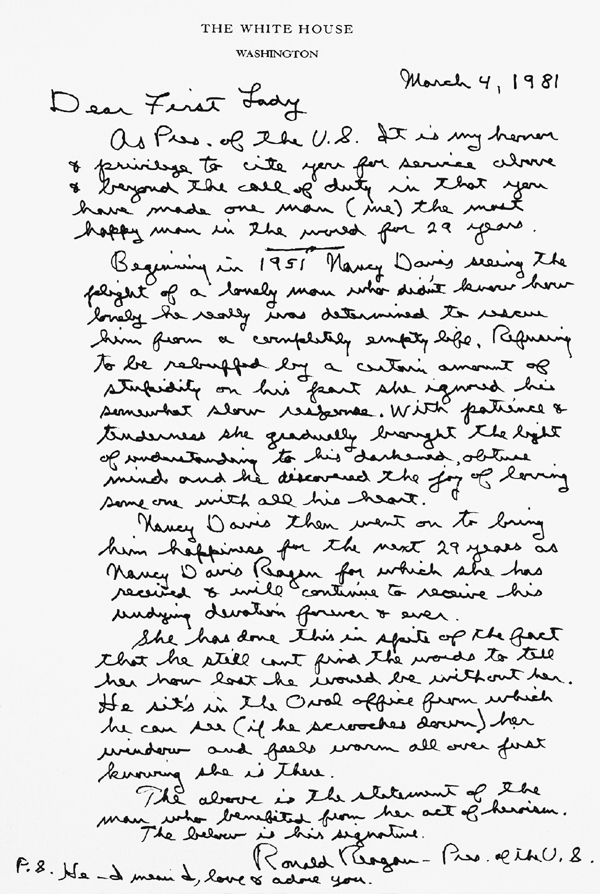 THE WHITE HOUSE
WASHINGTON
March 4, 1981
Dear First Lady
As Pres. of the U.S. It is my honor
& privilege to cite you for service above
& beyond the call of duty in that you
have made one man (me) the most
happy man in the world for 29 years.
Beginning in 1951 Nancy Davis seeing the
plight of a lonely man who didn't know how
lonely he really was determined to rescue
him from a completely empty life. Refusing
to be rebuffed by a certain amount of
stupidity on his part she ignored his
somewhat slow response. With patience &
tenderness she gradually brought the light
of understanding to his darkened, obtuse
mind and he discovered the joy of loving
someone with all his heart.
Nancy Davis then went on to bring
him happiness for the next 29 years as
Nancy Davis Reagan for which she has
received & will continue to receive his
undying devotion forever & ever.
She has done this in spite of the fact
that he still cant find the words to tell
her how lost he would be without her.
He sit's in the Oval office from which
he can see (if he scrooches down) her
window and feels warm all over just
knowing she is there.
The above is the statement of the
man who benefited from her act of heroism.
The below is his signature.
Ronald Reagan – Pres. of the U.S.
P.S. He – I mean I, love & adore you.